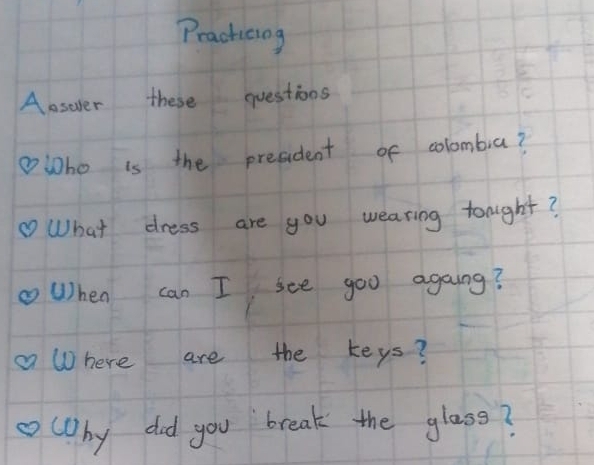 Practicing
Answer these questions
Who is the president of colombia?
What dress are you wearing tonight?
When can I see you againg?
Where are the keys?
Why did you break the glass?